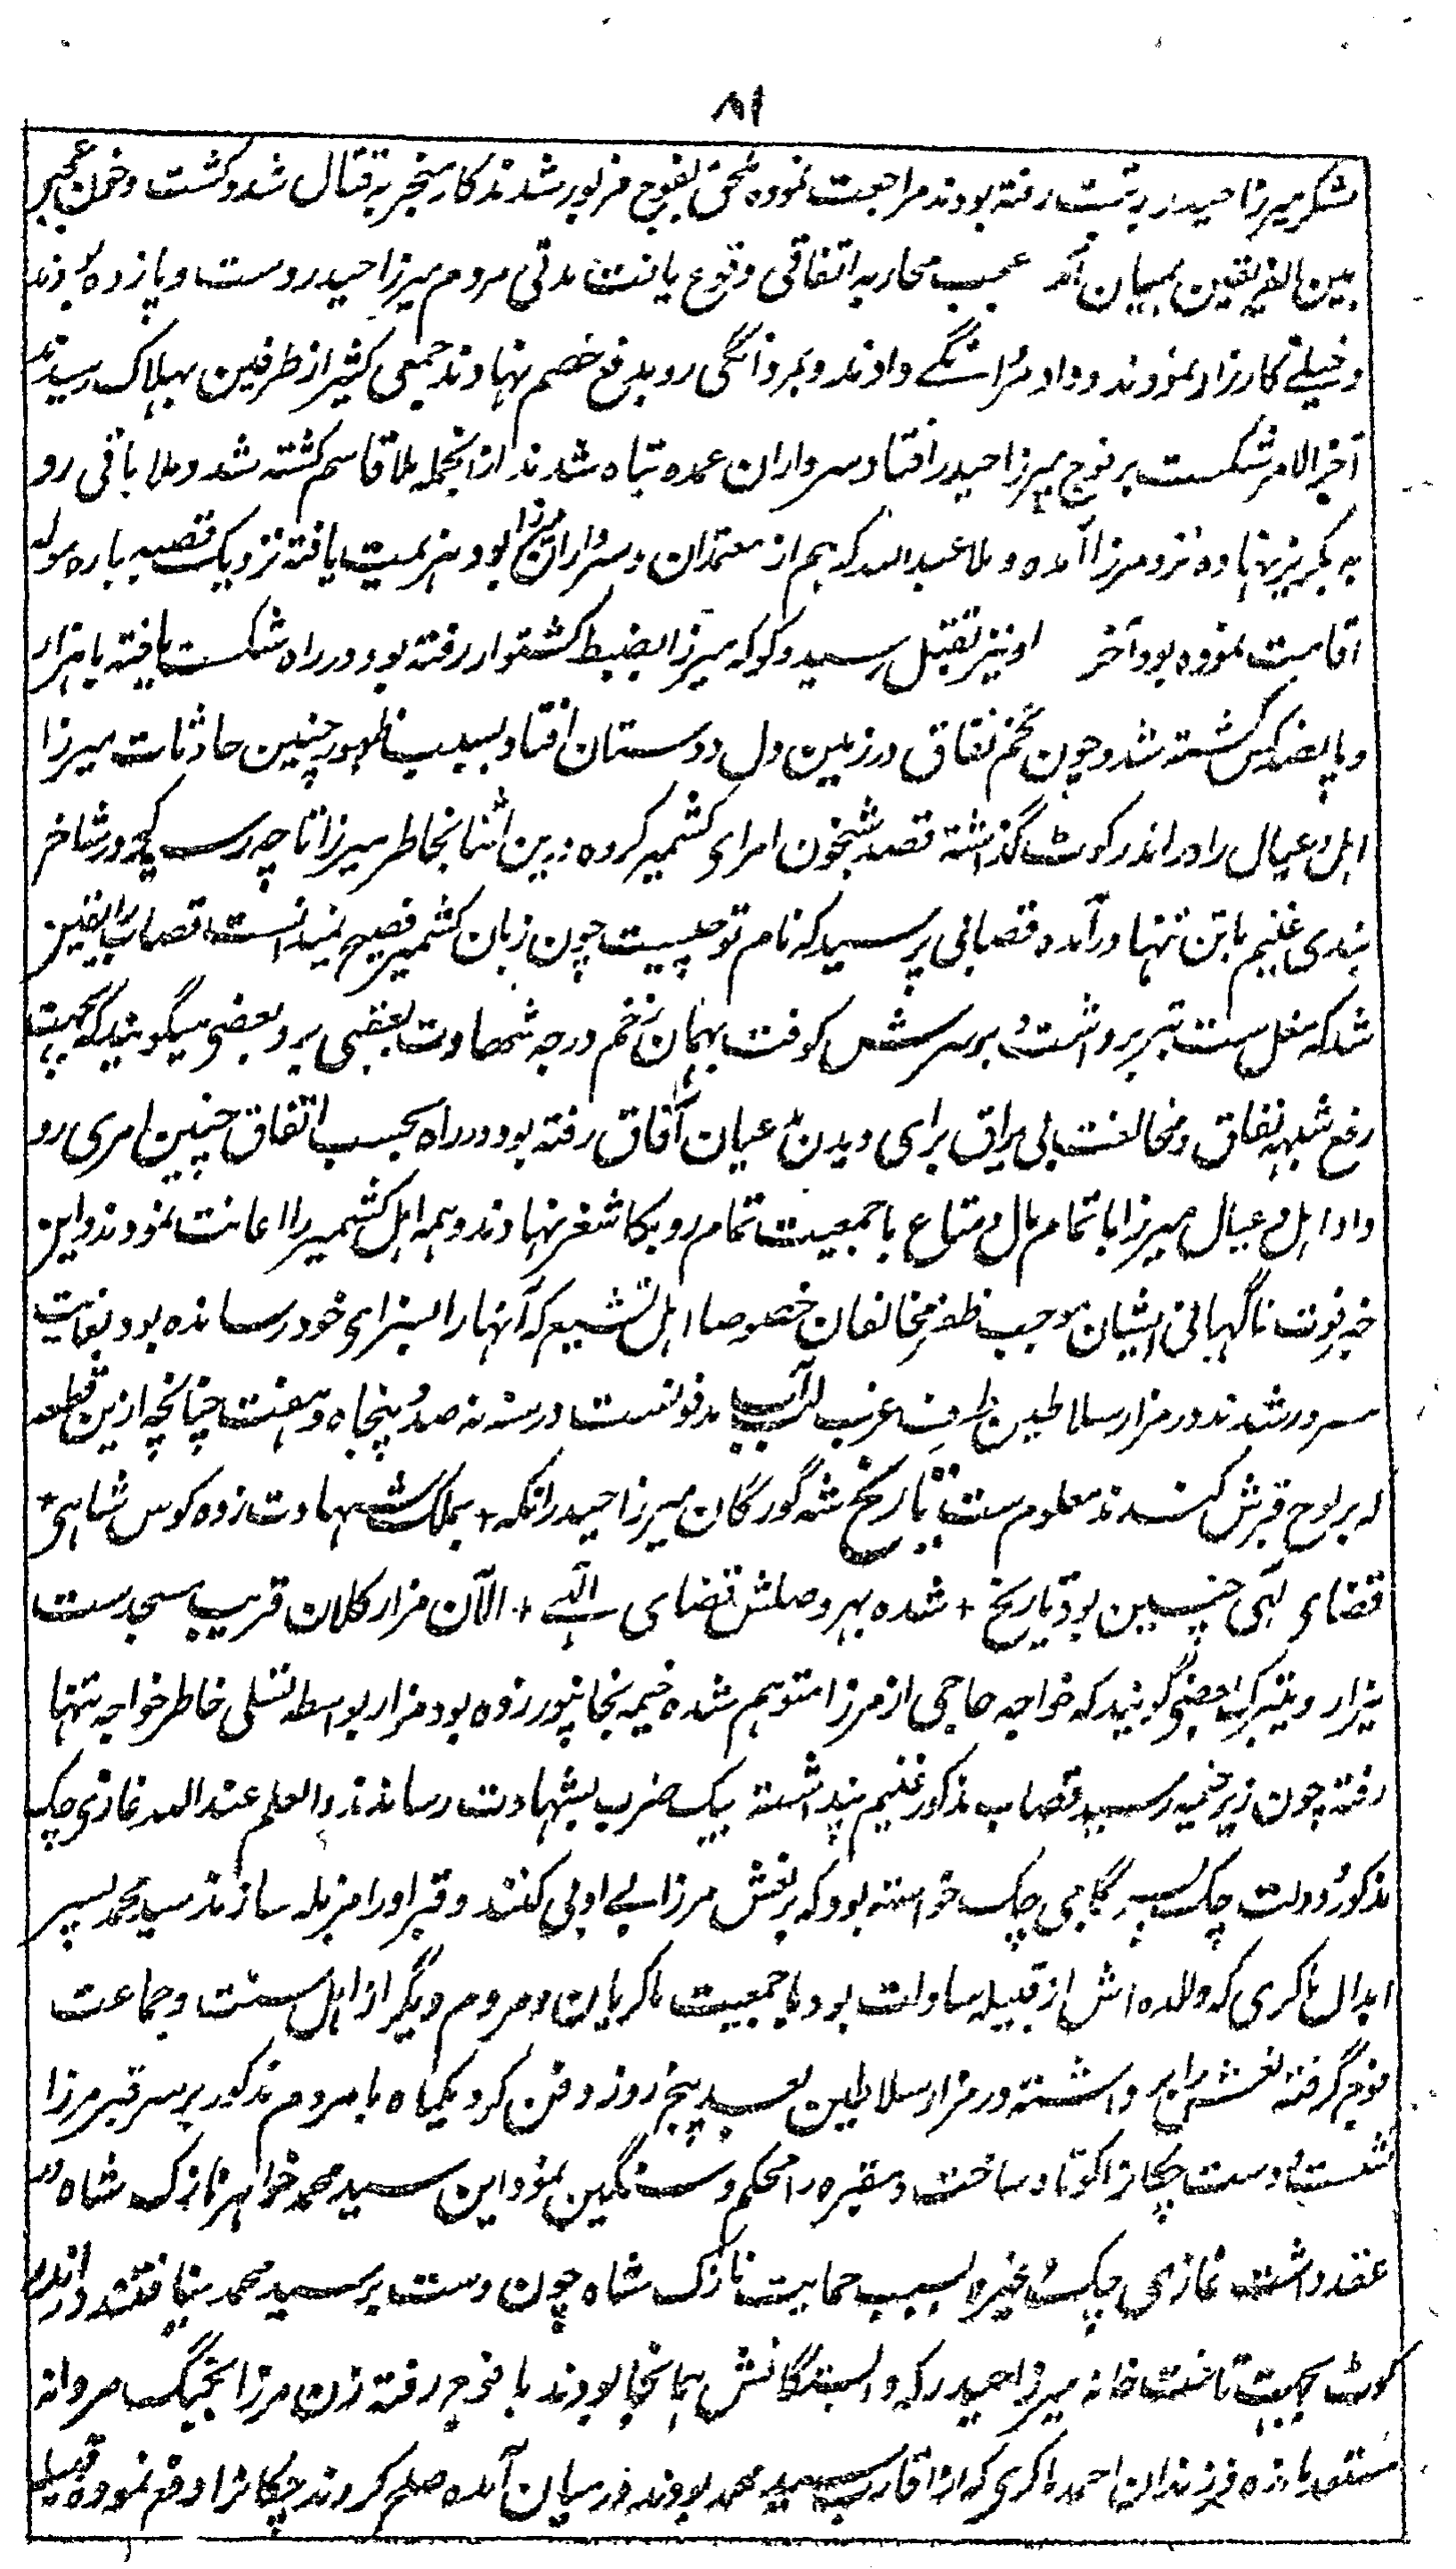 ۸۱
لشکر میرزا حیدر به تبت رفته بودند مراجعت نموده ملحق بفوج مزبور شدند کار منجر به قتال شد و کشت و خون عجیب
بین الفریقین بمیان آمد عجب محاربه اتفاقی وقوع یافت مدتی مردم میرزا حیدر دست و پا زده بودند
و خیلے کارزار نمودند و داد مردانگے دادند و بمردانگی رو بدفع خصم نهادند جمعی کثیر از طرفین بهلاک رسیدند
آخر الامر شکست بر فوج میرزا حیدر افتاد و سرداران عمده تباه شدند از انجمله ملا قاسم کشته شد و ملا باقی رو
به گریز نهاده نزد مرزا آمده و ملا عبد الله که هم از معتمدان و سرداران مرزا بود هزیمت یافته نزدیک قصبه باره موله
اقامت نموده بود آخر او نیز بقتل رسید و کوکه میرزا بضبط کشتوار رفته بود در راه شکست یافته با هزار
و پانصد کس کشته شد و چون تخم نفاق در زمین دل دوستان افتاد بسبب ظهور چنین حادثات میرزا
اهل و عیال را در اندر کوٹ گذاشته قصد شبخون امرای کشمیر کرده درین اثنا بخاطر میرزا تا چه رسد که در شاخ
بندی غنیم با تن تنها در آمده قصابی پرسید که نام تو چیست چون زبان کشمیر فصیح نمیدانست قصاب را یقین
شد که مغل ست تبر برداشت و بر سرش کوفت بهمان زخم درجه شهادت یعقبی برد بعضی میگویند که بجهت
رفع شبهه نفاق و مخالفت بی یراق برای دیدن عیان آفاق رفته بود در راه بحسب اتفاق چنین امری رو
داد اهل و عیال میرزا با تمام مال و متاع با جمعیت تمام رو بکاشغر نهادند و همه اهل کشمیر را اعانت نمودند و این
خبر فوت ناگهانی ایشان موجب ظفر مخالفان خصوصا اهل تشیع که آنها را بسزای خود رسانده بود بغایت
مسرور شدند در مزار سلاطین طرف غرب لب آب مدفونست در سنه نه صد و پنجاه و هفت چنانچه ازین قطعه
که بر لوح قبرش کندند معلوم ست بتاریخ شه گورکان میرزا حیدر انکه + بملک شهادت زده کوس شاهی +
قضای الهی چنین بود تاریخ + شده بهر وصلش قضای الٰہے + الآن مزار کلان قریب مسجد ست
یزار و یتبرک بعضی گویند که خواجه حاجی از مرزا متوهم شده خیمه بخانپور زده بود مزار بواسطه تسلی خاطر خواجه تنها
رفته چون زیر خیمه رسید قصاب مذکور غنیم پنداشته بیک ضرب بشهادت رساندند والعلم عند الله غازی چک
مذکور و دولت چک پسر کاجی چک خواسته بود که بر نعش مرزا بے ادبی کنند و قبر او را مزبله سازند سید محمد پسر
ابدال ماکری که والده اش از قبیله سادات بود با جمعیت ماکریان و مردم دیگر از اهل سنت و جماعت
فوج گرفته نعش را برداشته در مزار سلاطین بعد پنج روز دفن کرد یکماه با مردم مذکور بر سر قبر مرزا
نشست و دست چکانرا کوتاه ساخت و مقبره را محکم و سنگین نمود این سید محمد خواهر نازک شاه در
عقد داشت غازی چک و غیره بسبب حمایت نازک شاه چون دست بر سید محمد نیافتند در اندر
کوٹ بجهت تاخت خانه میرزا حیدر که وابستگانش همانجا بودند با فوج رفته زن مرزا بجنگ مردانه
مستعد فرزندان احمد ماکری که از اقارب سید محمد بودند در میان آمده صلح کردند چکانرا دفع نموده